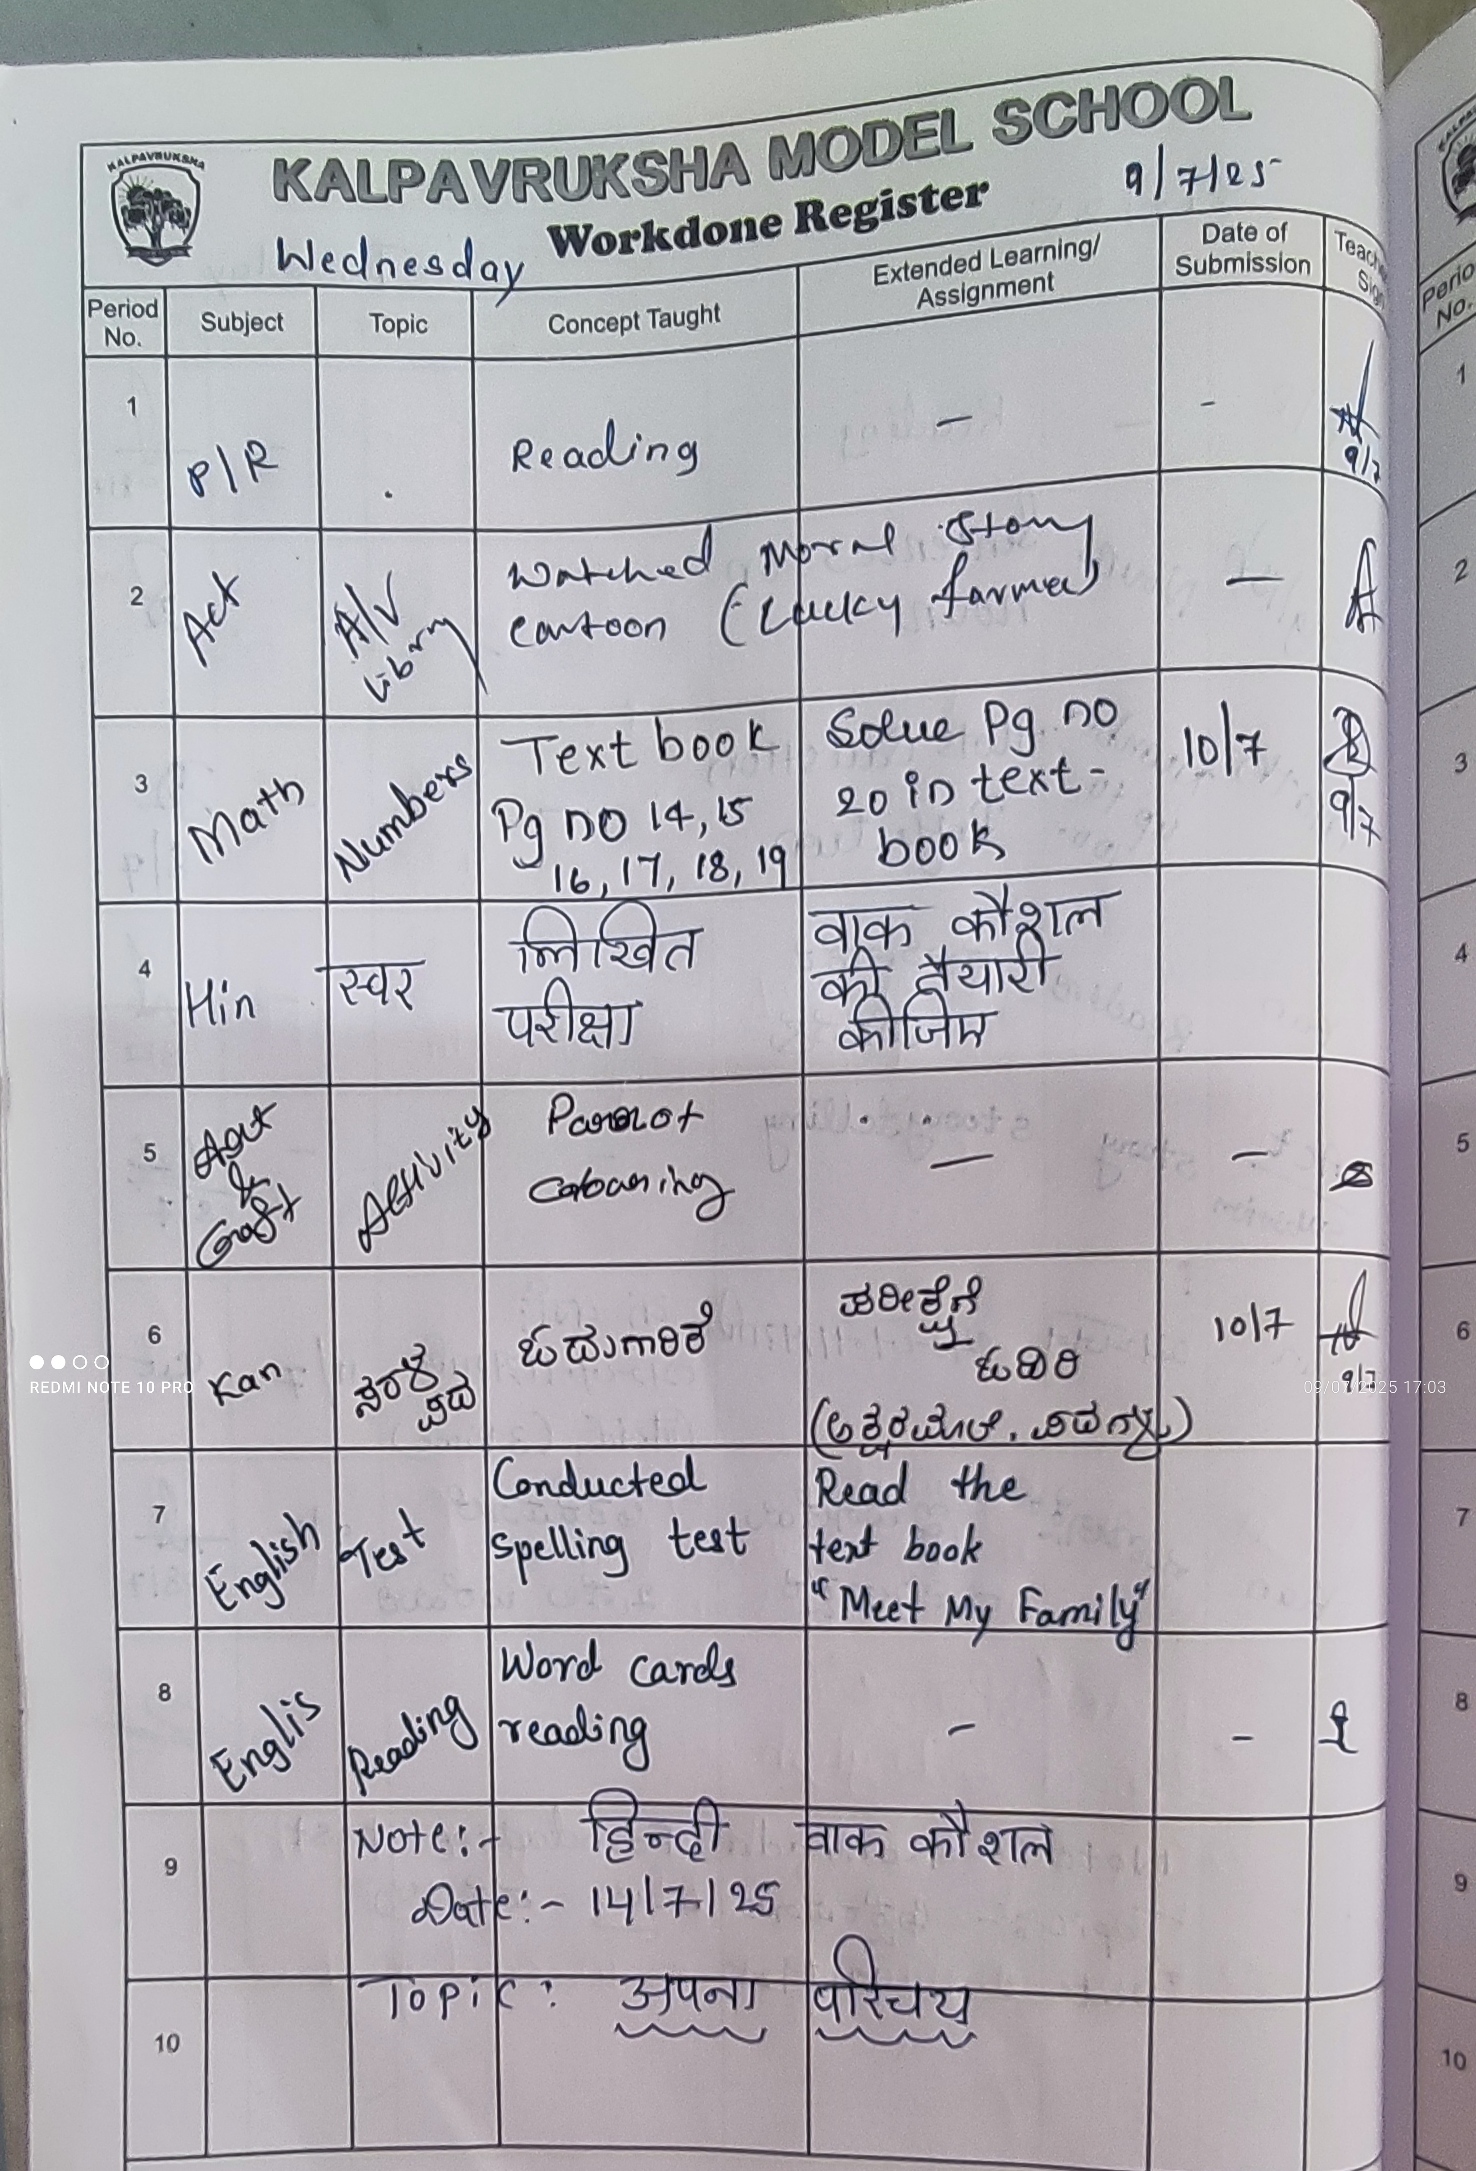 KALPAVRUKSHA
KALPAVRUKSHA MODEL SCHOOL
Workdone Register
9/7/25
Wednesday
Period No.
Subject
Topic
Concept Taught
Extended Learning/
Assignment
Date of
Submission
1
P/R
Reading
-
-
9/7
2
Act
A/V
library
Watched Moral Story
cartoon (Lucky farmer)
-
3
Math
Numbers
Text book
Pg no 14, 15
16, 17, 18, 19
Solve Pg no
20 in text-
book
10/7
9/7
4
Hin
स्वर
लिखित
परीक्षा
वाक कौशल
की तैयारी
कीजिए
5
Art
&
Craft
Activity
Parrot
-
-
6
Kan
ಸರಳ
ಪದ
ಓದುಗಾರಿಕೆ
ಪರೀಕ್ಷೆಗೆ
ಓದಿರಿ
10/7
9/7
7
English
Test
Conducted
spelling test
Read the
text book
"Meet My Family"
8
Englis
Reading
Word cards
reading
-
-
9
Note:- हिन्दी वाक कौशल
Date:- 14/7/25
10
Topic: अपना परिचय
REDMI NOTE 10 PRO
09/07/2025 17:03